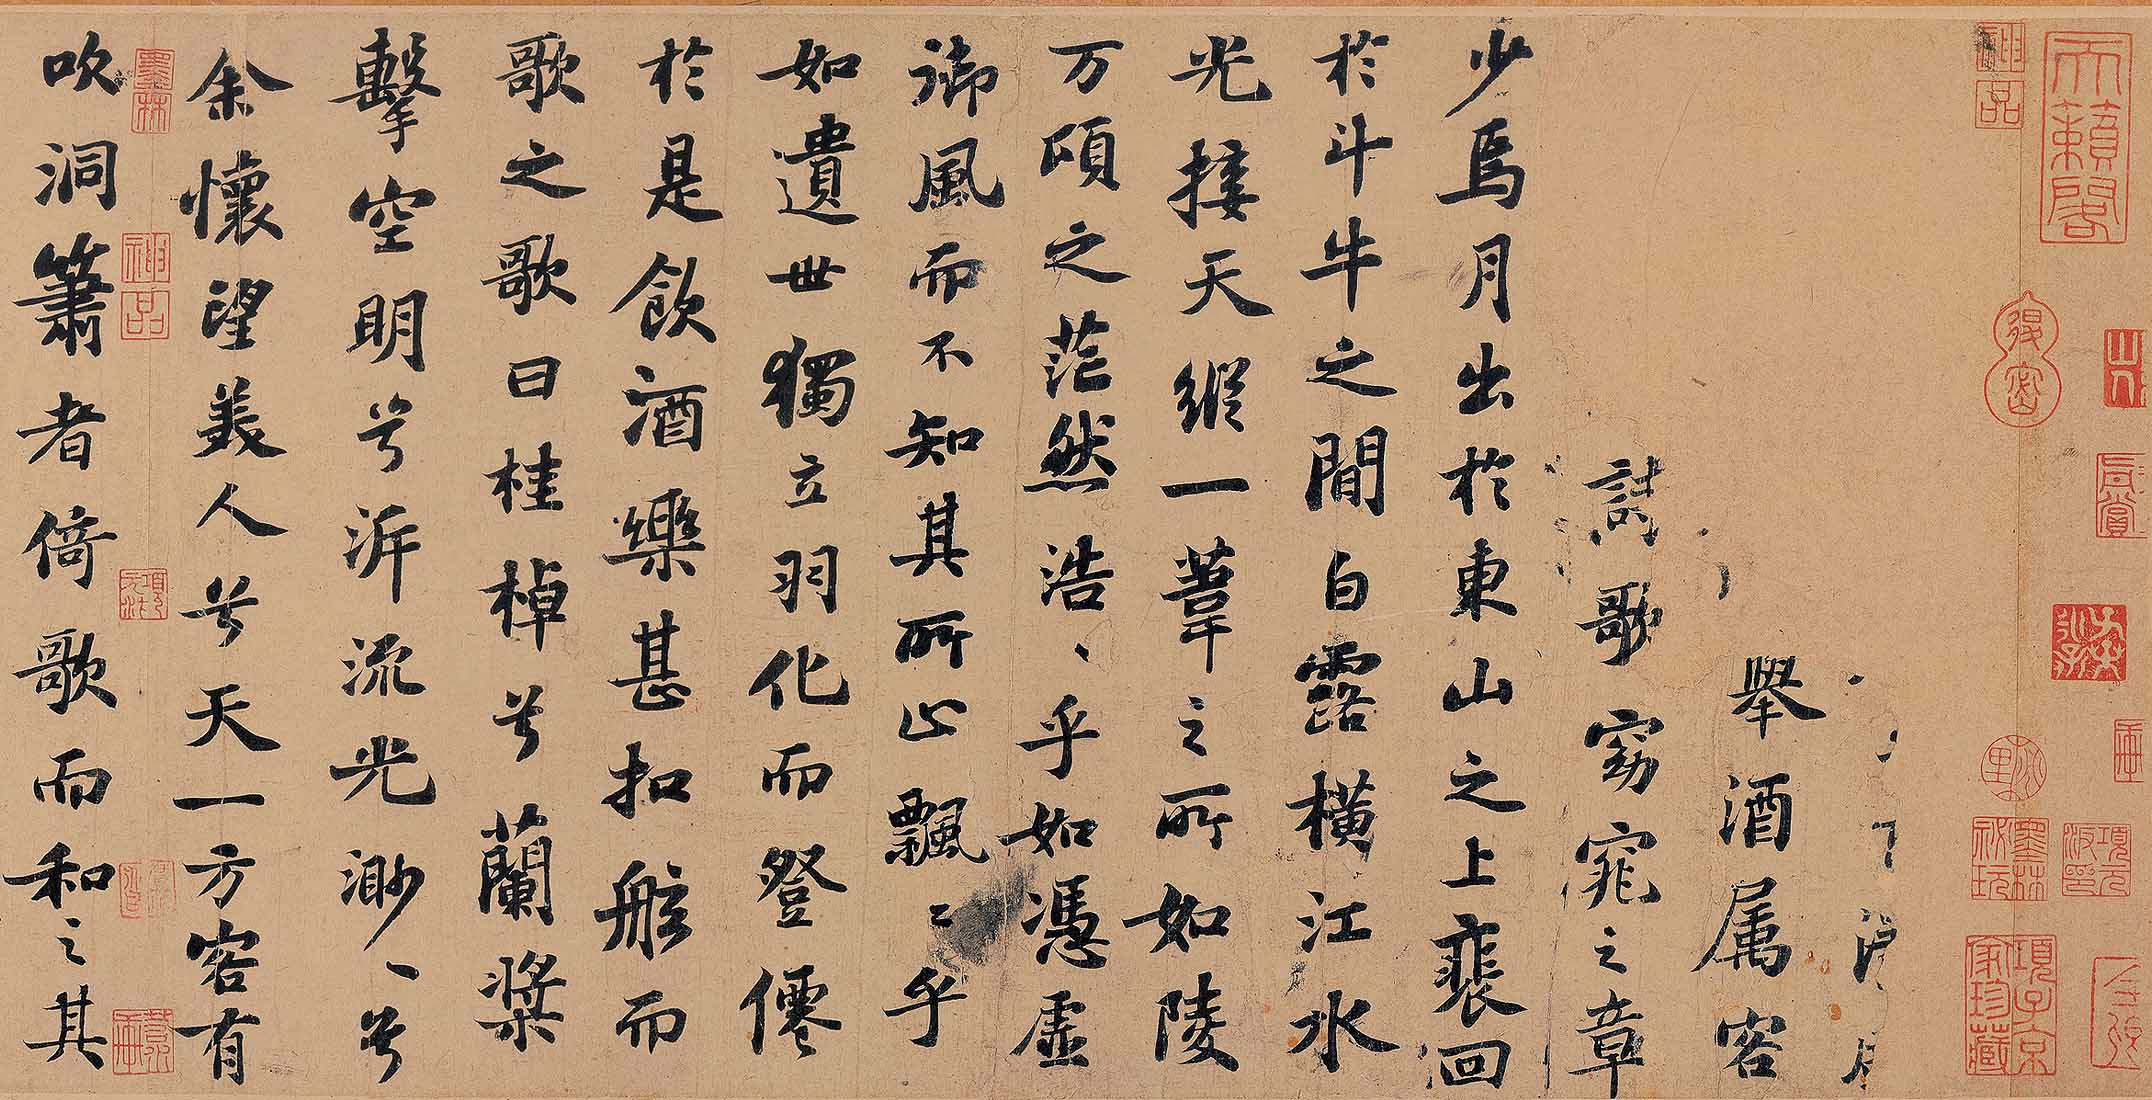 天籟閣
神品
墨林秘玩
項子京家珍藏
舉酒属客
歌窈窕之章
少焉月出於東山之上裴回
於斗牛之間白露橫江水
光接天縱一葦之所如陵
万頃之茫然浩、乎如憑虛
御風而不知其所止飄〻乎
如遺世獨立羽化而登僊
於是飲酒樂甚扣舷而
歌之歌曰桂棹兮蘭槳
擊空明兮泝流光渺、兮
余懷望美人兮天一方客有
墨林
神品
吹洞簫者倚歌而和之其